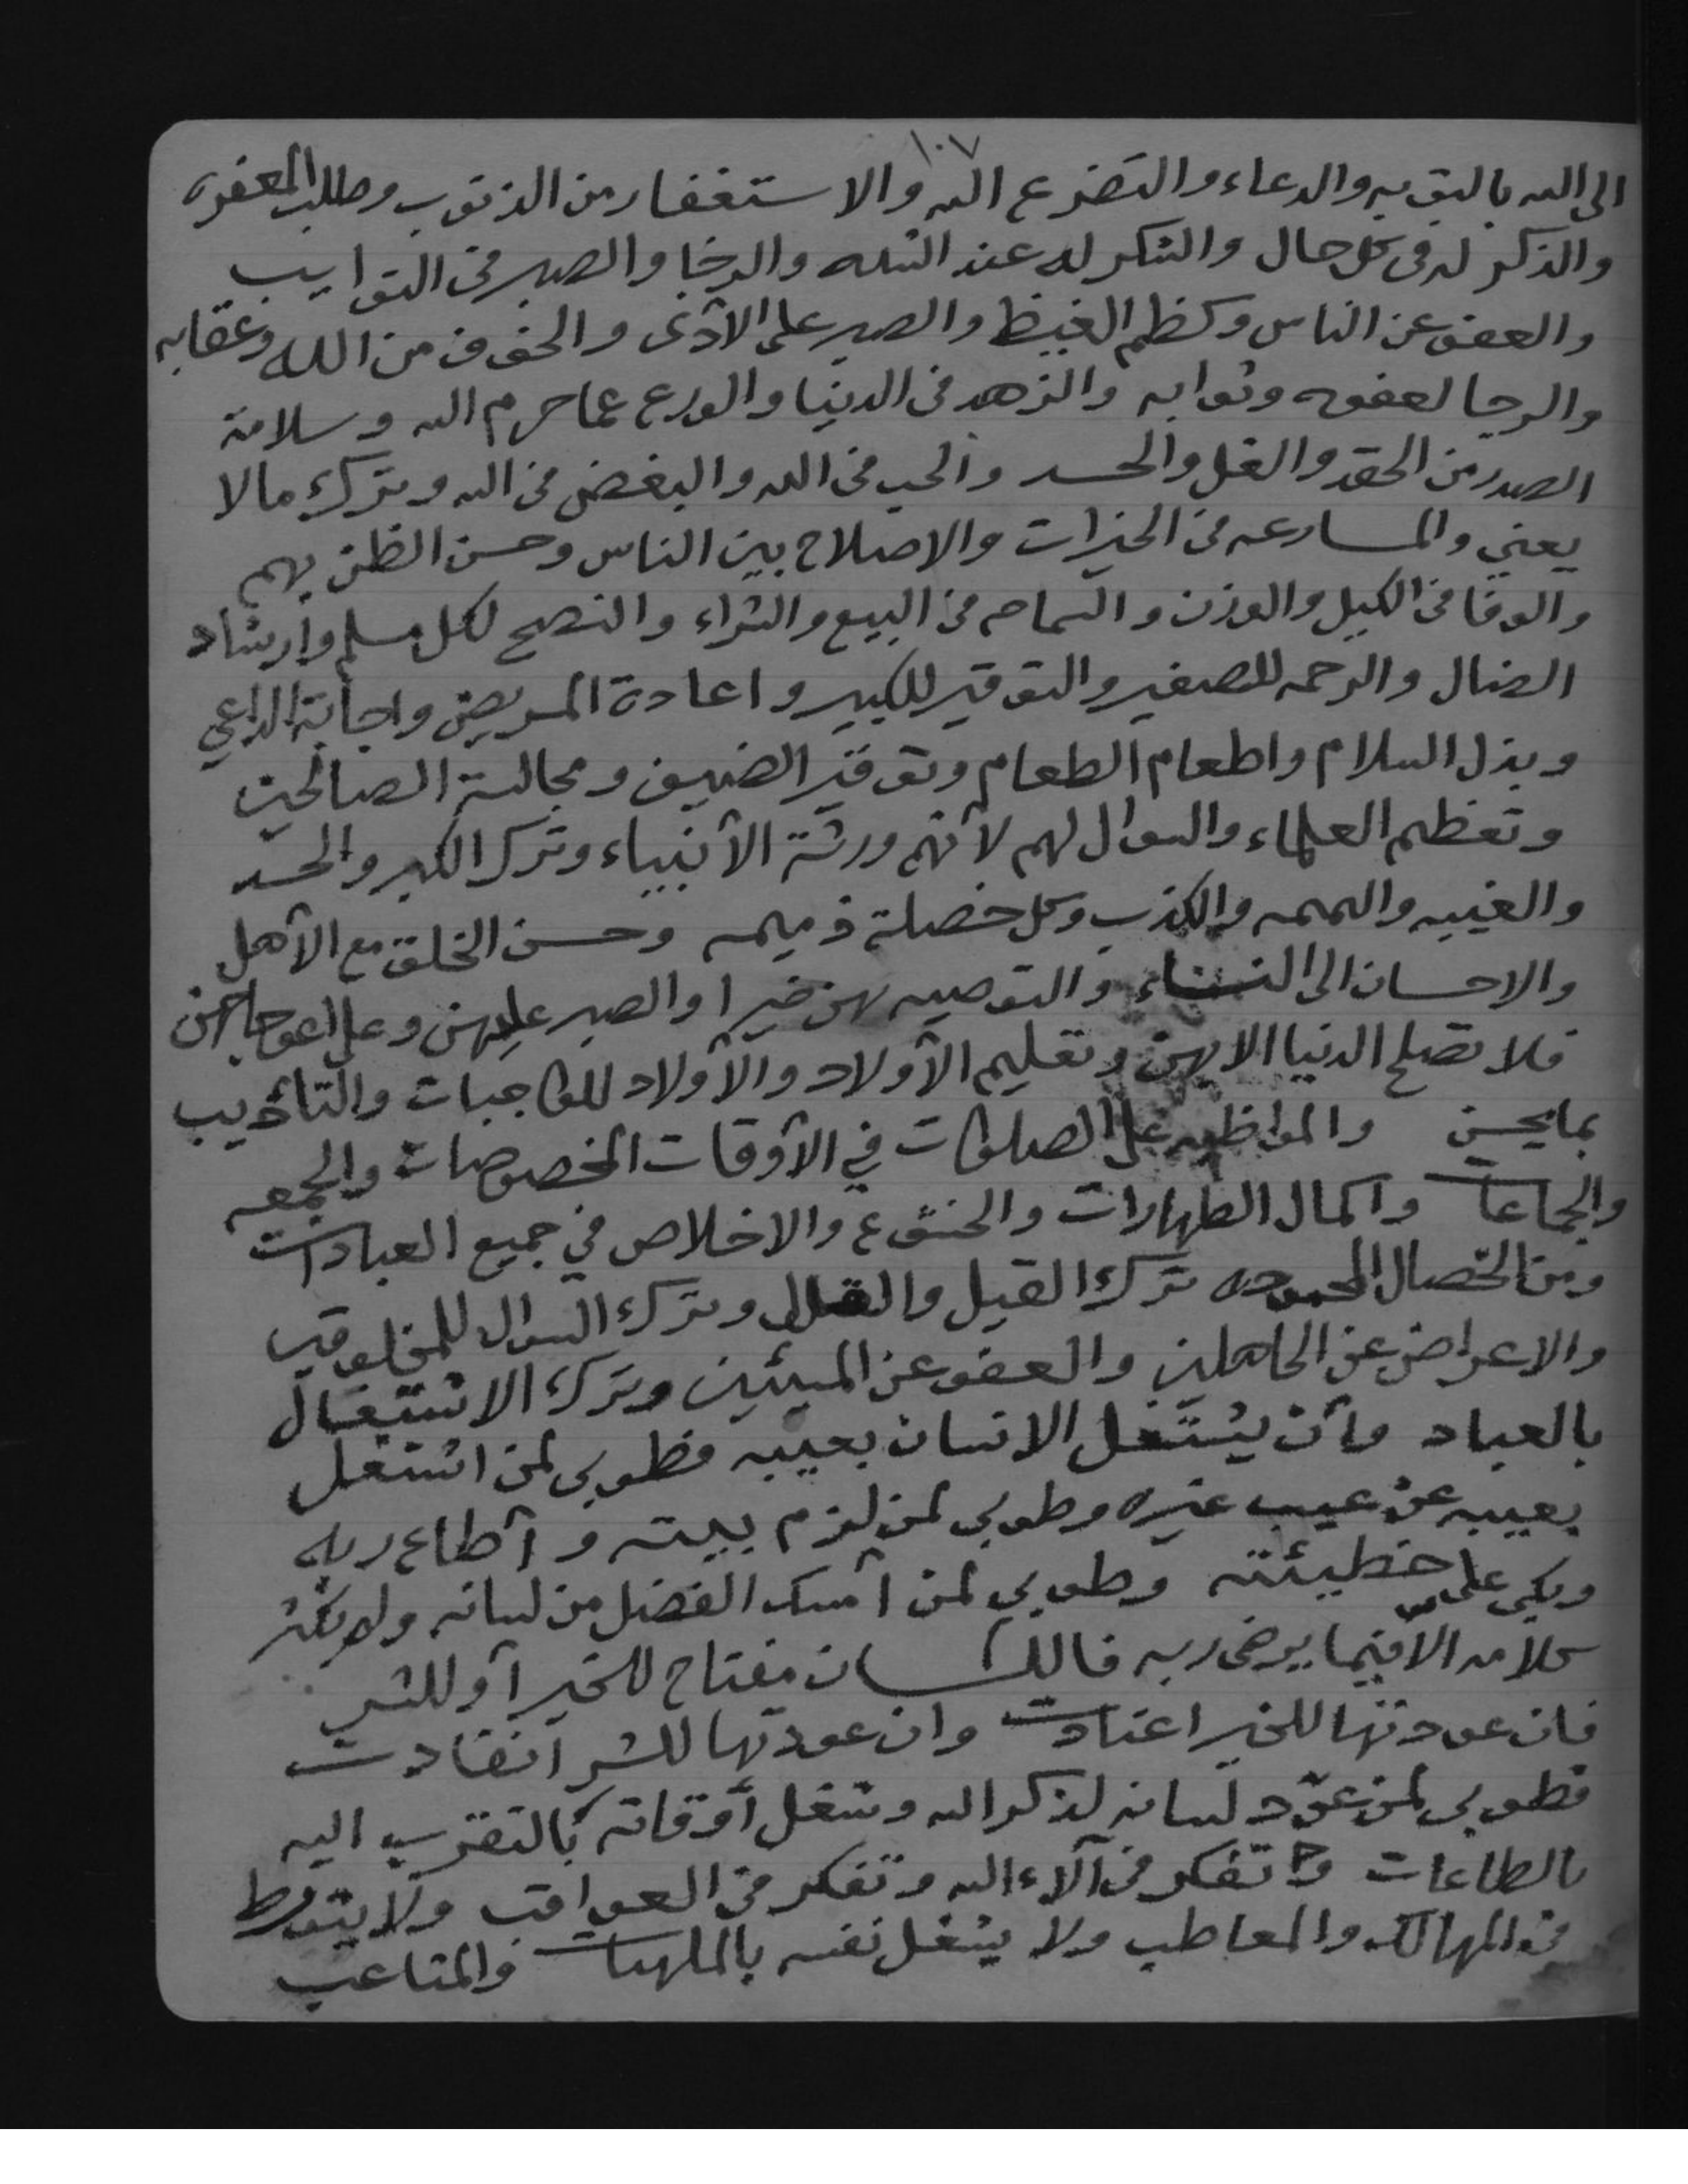 ١٠٧
الى الله بالتوبه والدعاء والتضرع اليه والاستغفار من الذنوب وطلب المغفره
والذكر له في كل حال والشكر له عند الشده والرخا والصبر في النوايب
والعفو عن الناس وكظم الغيظ والصبر على الأذى والخوف من الله وعقابه
والرجا لعفوه وثوابه والزهد في الدنيا والورع عما حرم الله وسلامة
الصدر من الحقد والغل والحسد والحب في الله والبغض في الله وترك مالا
يعني والمسارعه في الخيرات والاصلاح بين الناس وحسن الظن بهم
والوفا في الكيل والوزن والسماحه في البيع والشراء والنصح لكل مسلم وارشاد
الضال والرحمه للصغير والتوقير للكبير واعادة المريض واجابة الداعي
وبذل السلام واطعام الطعام وتوقير الضيف ومجالسة الصالحين
وتعظيم العلماء والسوال لهم لأنهم ورثة الأنبياء وترك الكبر والحسد
والغيبه والنميمه والكذب وكل خصلة ذميمه وحسن الخلق مع الأهل
والاحسان الى النساء والتوصيه بهن خيرا والصبر عليهن وعلى اعوجاجهن
فلا تصلح الدنيا الا بهن وتعليم الأولاد والأولاد للواجبات والتأديب
بما يحسن والمواظبه على الصلوات في الأوقات المخصوصات والجمعه
والجماعات واكمال الطهارات والخشوع والاخلاص في جميع العبادات
ومن الخصال المحموده ترك القيل والقال وترك السوال للمخلوقين
والاعراض عن الجاهلين والعفو عن المسيئين وترك الاشتغال
بالعباد وأن يشتغل الانسان بعيبه فطوبى لمن اشتغل
بعيبه عن عيب غيره وطوبي لمن لزم بيته وأطاع ربه
وبكى على خطيئته وطوبي لمن أمسك الفضل من لسانه ولم يكثر
كلامه الا فيما يرضى ربه فاللسان مفتاح للخير أو للشر
فان عودتها للخير اعتادت وان عودتها للشر انقادت
فطوبى لمن عوّد لسانه لذكر الله وشغل أوقاته بالتقرب اليه
بالطاعات وتفكر في آلاء الله وتفكر في العواقب ولا يتورط
في المهالك والمعاطب ولا يشغل نفسه بالملهيات والمتاعب